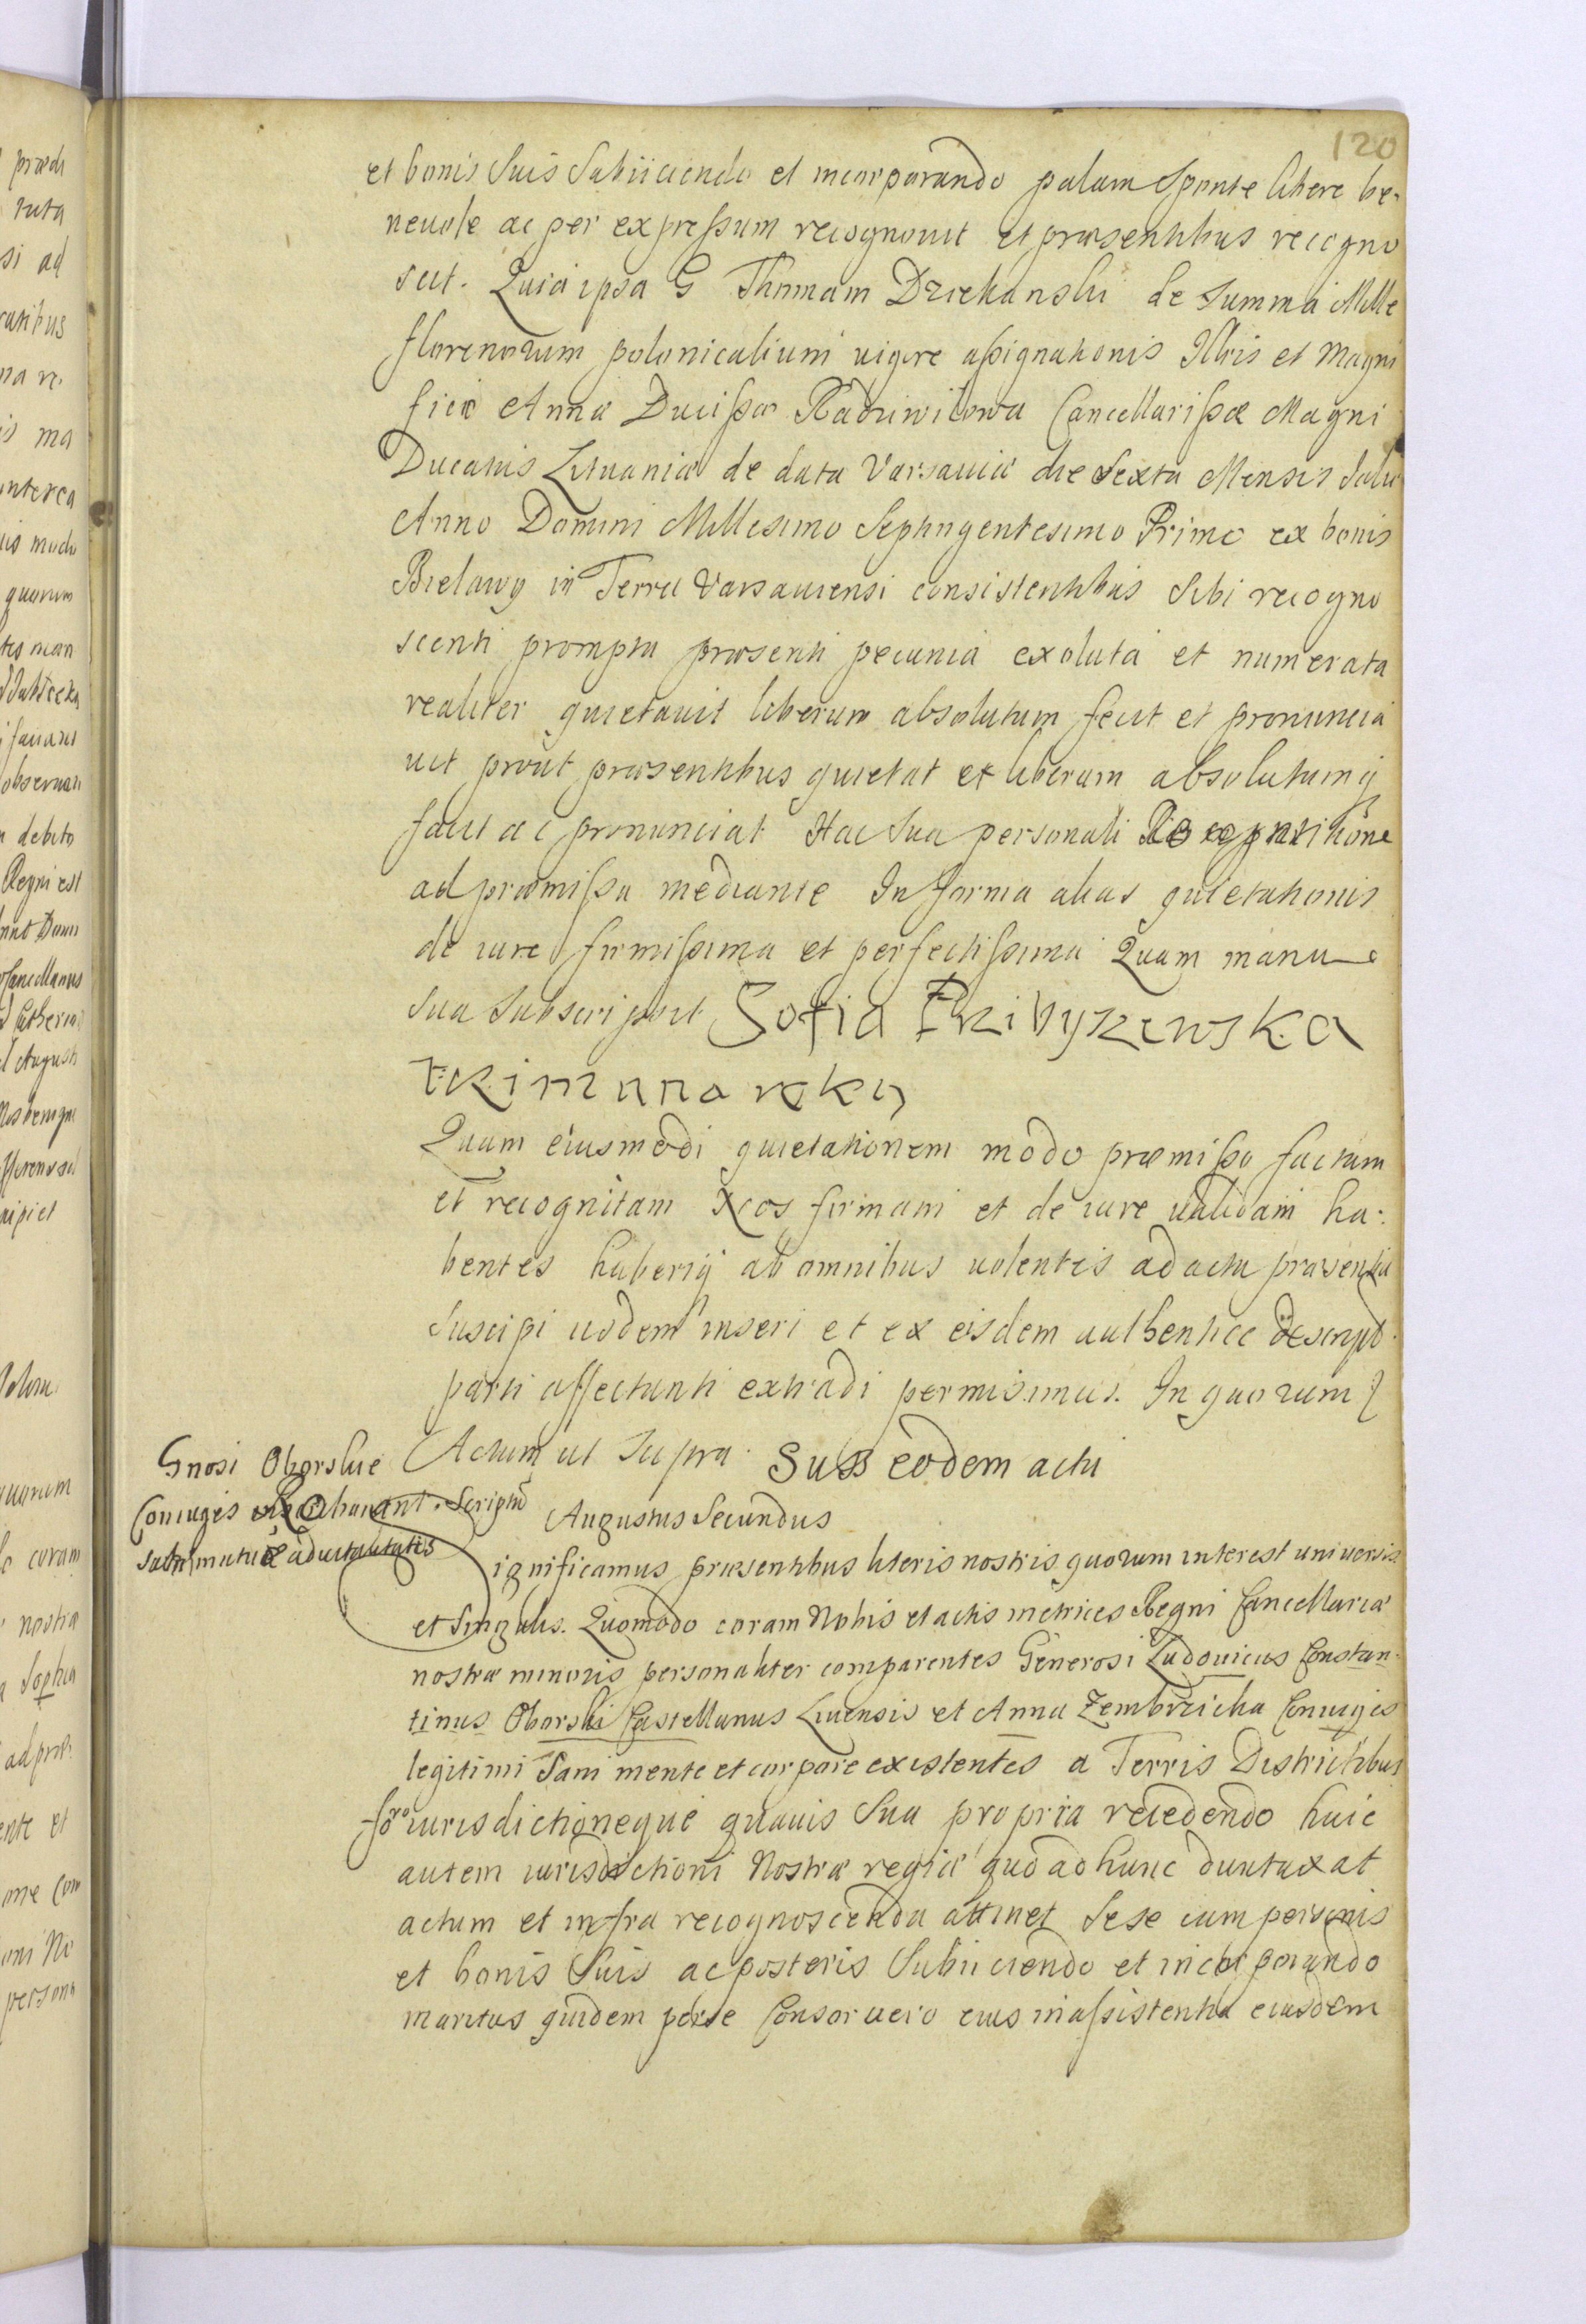 120
et bonis Suis Subiiciendo et incorporando palam Sponte libere be-
neuole ac per expressum recognouit et præsentibus recogno
scit. Quia ipsa G Thomam Dziekanski de Summa Mille
florenorum polonicalium uigore assignationis Illris et Magni
ficæ Annæ Ducissæ Radziwilowa Cancellarissæ Magni
Ducatus Lituaniæ de data Varsauiæ die Sexta Mensis Julii
Anno Domini Millesimo Septingentesimo Primo ex bonis
Bielawy in Terra Varsauiensi consistentibus Sibi recogno
scenti prompta præsenti pecunia exoluta et numerata
realiter quietauit liberum absolutum fecit et pronuncia
uit prout præsentibus quietat et liberum absolutumq
facit ac pronunciat Hac Sua personali Recognitione
ad præmissa mediante In forma alias quietationis
de iure firmissima et perfectissima Quam manu
Sua Subscripsit Sofia
Quam eiusmodi quietationem modo præmisso factam
et recognitam Nos firmam et de iure ualidam ha-
bentes haberiq ab omnibus uolentes ad acta præsentia
Suscipi iisdem inseri et ex eisdem authentice descript
parti affectanti extradi permisimus. In quorum
Actum ut Supra. Sub eodem actu
Gnosi Oborskie
Coniuges Roborant. Script
Sabi mutuæ aduitalitatis
Augustus Secundus
Significamus præsentibus literis nostris quorum interest uniuersis
et Singulis. Quomodo coram Nobis et actis metrices Regni Cancellariæ
nostræ minoris personaliter comparentes Generosi Ludouicus Constan-
tinus Oborski Castellanus Liuensis et Anna Zembrzicka Coniuges
legitimi Sani mente et corpore existentes a Terris Districtibus
foro iurisdictioneque quauis Sua propria recedendo huic
autem iurisdictioni Nostræ regiæ quo ad hunc duntaxat
actum et infra recognoscenda attinet Sese cum personis
et bonis Suis ac posteris Subiiciendo et incorporando
maritus quidem per se Consor uero eius in assistentia eiusdem